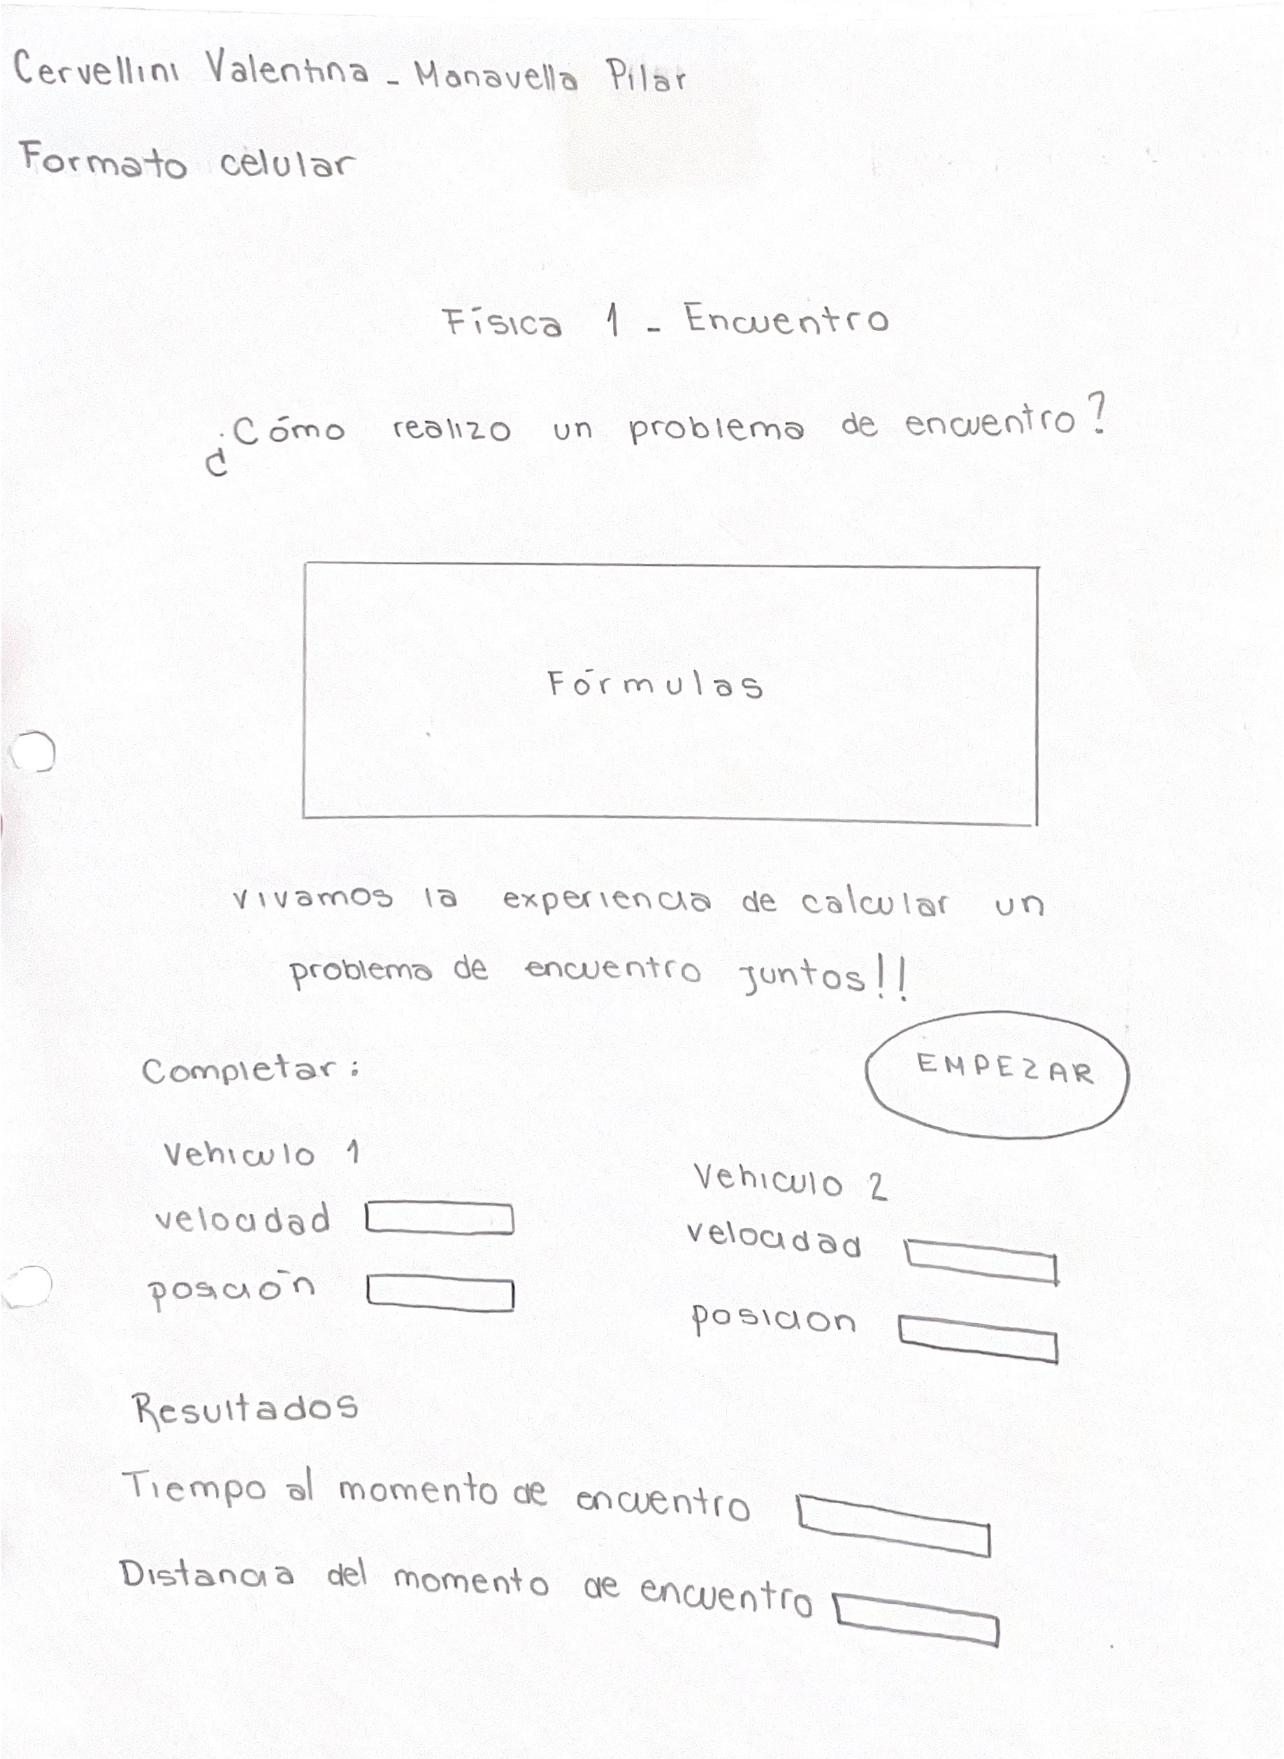 Cervellini Valentina - Manavella Pilar
Formato celular
Física 1 - Encuentro
¿Cómo realizo un problema de encuentro?
Fórmulas
vivamos la experiencia de calcular un
problema de encuentro juntos!!
EMPEZAR
Completar:
Vehiculo 1
velocidad
posición
Vehiculo 2
velocidad
posicion
Resultados
Tiempo al momento de encuentro
Distancia del momento de encuentro